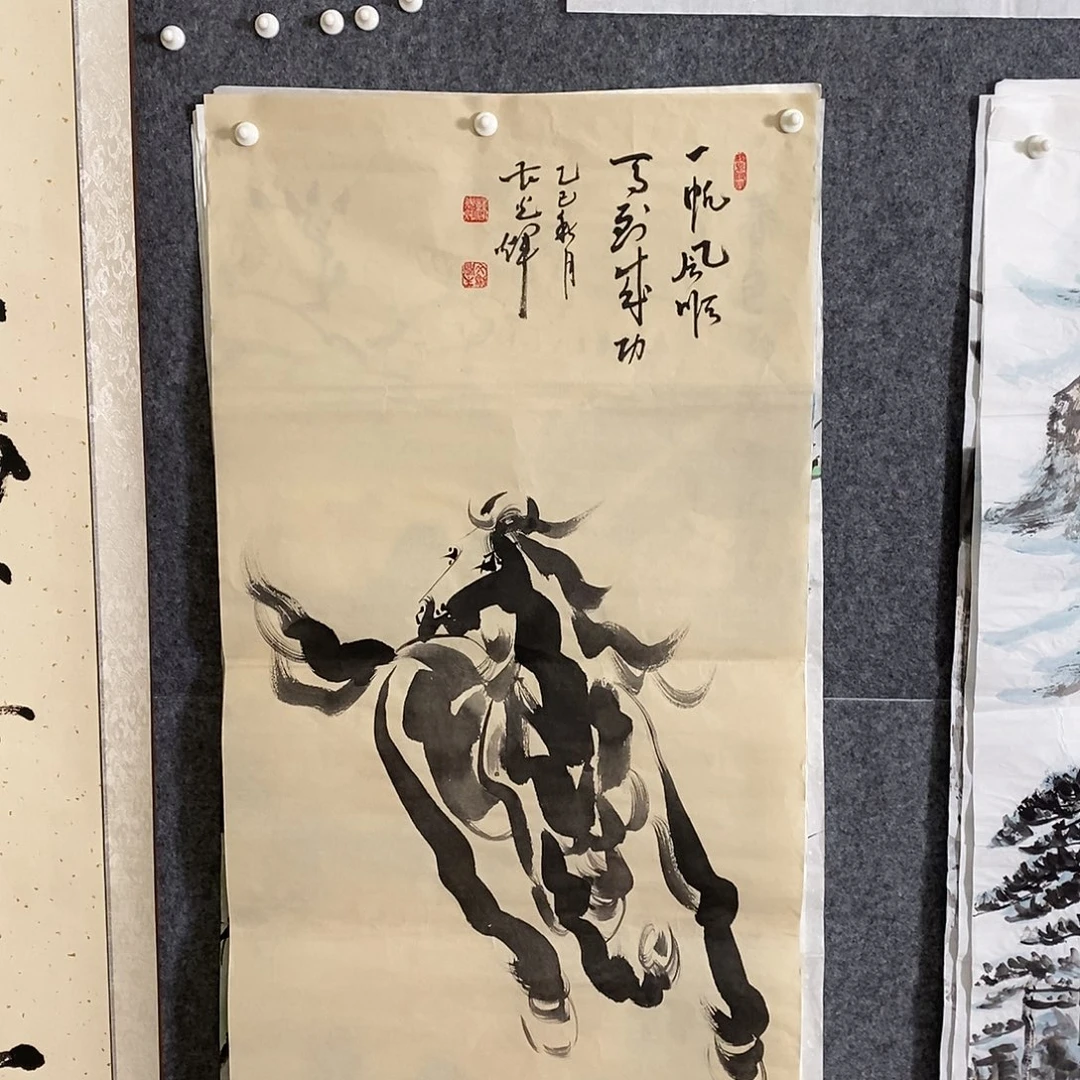 一帆风顺
马到成功
乙巳秋月
光辉